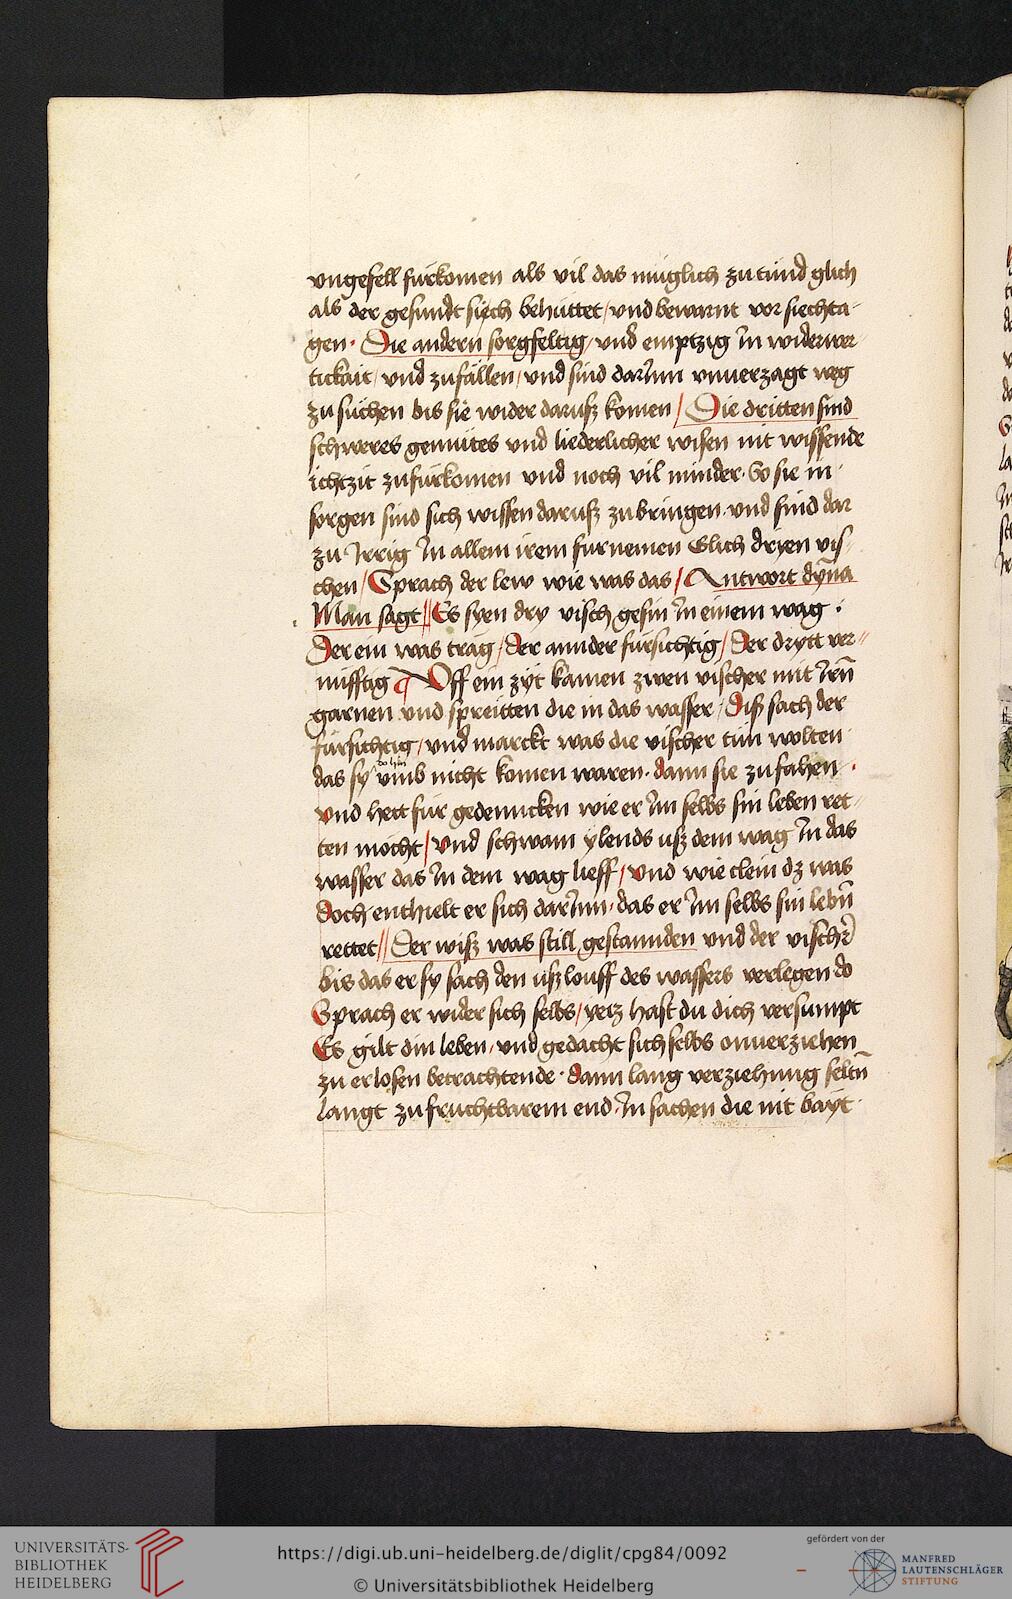 vngefell fürkomen als vil das müglich zu tünd glich
als der gesundt siech behüttet / vnd bewarnt vor siechta-
gen · Die andern sorgfeltig / vnd emptzig jn widerwer-
tickait / vnd zufällen / vnd sind darjnn vnuerzagt weg
zu suchen bis sie wider darusz komen / Die dritten sind
schweres gemütes vnd liederlicher wisen nit wissende
ichtzit zufürkomen vnd noch vil minder · So sie in
sorgen sind sich wissen darusz zu bringen · vnd sind dar
zu Jrrig Jn allem irem furnemen Glich dryen vis-
chen / Sprach der lew wie was das / Antwort dÿna
Man sagt // Es syen dry visch gesin Jn einem wag ·
Der ein was träg / der annder fürsichtig / Der drytt ver-
nüfftig ¶ Vff ein zÿt kamen zwen vischer mit Jren̄
garnen vnd spreitten die in das wasser / Disz sach der
fürsichtig / vnd marckt was die vischer tün wolten
das sy do hin vmb nicht komen waren · dann sie zu fahen ·
vnd hett für gedenncken wie er Jm selbs sin leben ret-
ten mocht / vnd schwam ylends usz dem wag Jn das
wasser das Jn dem wag lieff / vnd wie clein dz was
doch enthielt er sich darjnn · das er Jm selbs sin lebn̄
rettet // Der wisz was still gestannden vnd der vischr̄
bis das er sy sach den uszlouff des wassers verlegen do
Sprach er wider sich selbs / yetz hast du dich versumpt
Es gilt din leben / vnd gedacht sich selbs onuerziehen
zu erlosen betrachtende · dann lang verziehung seltn̄
langt zu fruchtbarem end · Jn sachen die nit bayt
UNIVERSITÄTS-
BIBLIOTHEK
HEIDELBERG
https://digi.ub.uni-heidelberg.de/diglit/cpg84/0092
© Universitätsbibliothek Heidelberg
gefördert von der
MANFRED
LAUTENSCHLÄGER
STIFTUNG